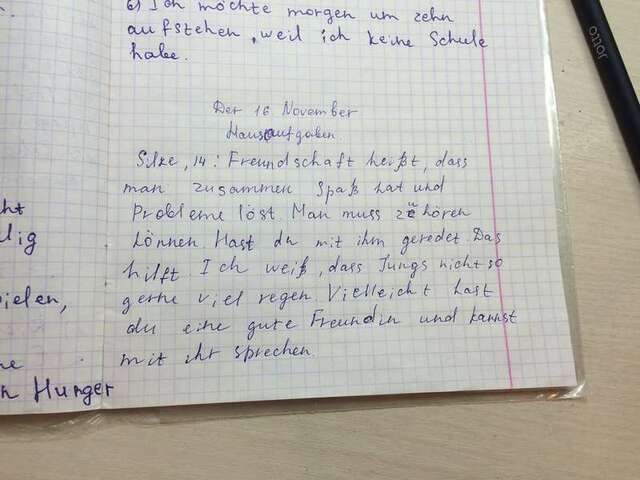 6) Ich möchte morgen um zehn
aufstehen, weil ich keine Schule
habe.
Der 16 November
Hausaufgaben.
Silke, 14: Freundschaft heißt, dass
man zusammen Spaß hat und
Probleme löst. Man muss zuhören
können Hast du mit ihm geredet. Das
hilft Ich weiß, dass Jungs nicht so
gerne viel regen Vielleicht hast
du eine gute Freundin und kannst
mit ihr sprechen.
cht
ielen,
n Hunger
JOTTO